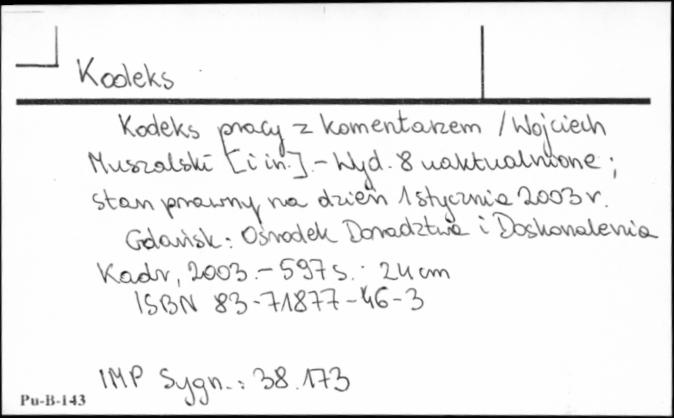 Kodeks
Kodeks pracy z komentarzem / Wojciech
Muszalski [i in.]. - Wyd. 8 uaktualnione ;
stan prawny na dzień 1 stycznia 2003 r.
Gdańsk : Ośrodek Doradztwa i Doskonalenia
Kadr, 2003. - 597 s. ; 24 cm
ISBN 83-71877-46-3
IMP Sygn. : 38.173
Pu-B-143